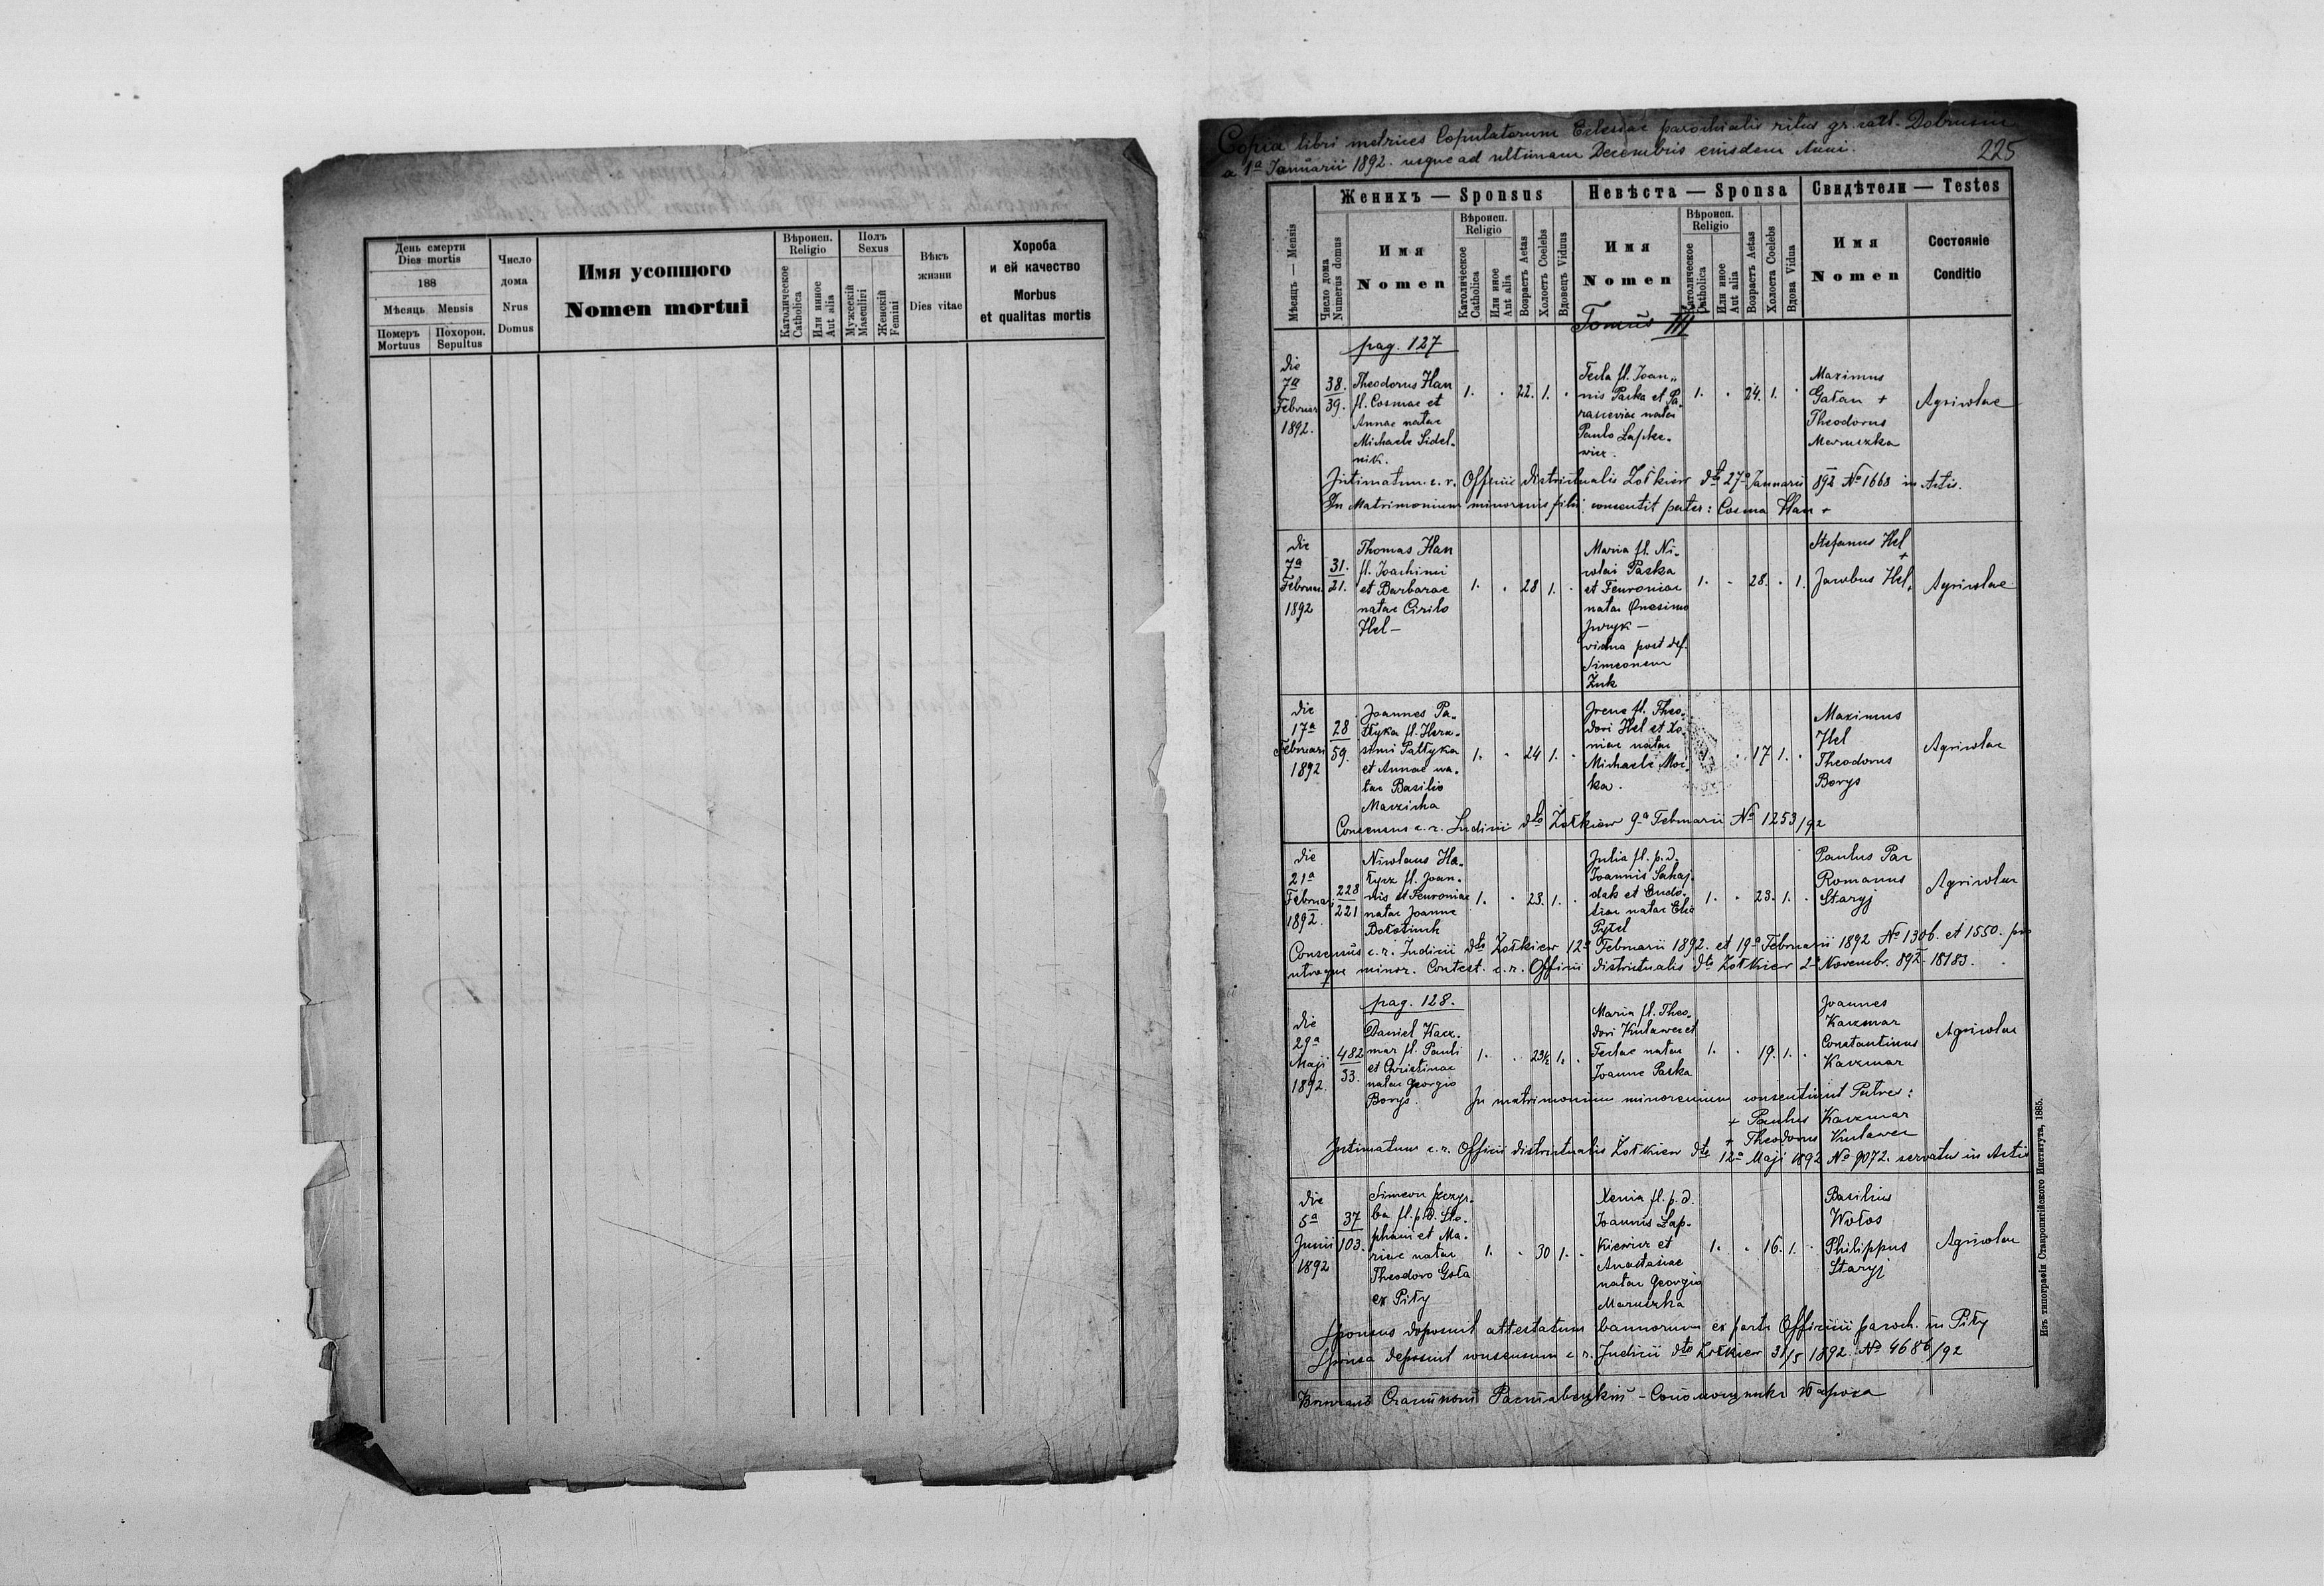 День смерти
Dies mortis
188
Мѣсяць Mensis
Померъ Mortuus
Похорон. Sepultus
Число дома
Nrus Domus
Имя усопшого
Nomen mortui
Вѣроисп. Religio
Католическое Catholica
Или инное Aut alia
Полъ Sexus
Мужескій Masculini
Женскій Feminini
Вѣкъ жизни
Dies vitae
Хороба
и ей качество
Morbus
et qualitas mortis
Copia libri metrices Copulatorum Eclesiae parochialis ritus gr. cath. Dobrusin
a 1a Januarii 1892. usque ad ultimam Decembris eiusdem Anni.
225
Мѣсяць — Mensis
Женихъ — Sponsus
Число дома Numerus domus
Имя
Nomen
Вѣроисп. Religio
Католическое Catholica
Или иное Aut alia
Возрастъ Aetas
Холостъ Coelebs
Вдовецъ Viduus
Невѣста — Sponsa
Имя
Nomen
Вѣроисп. Religio
Католическое Catholica
Или иное Aut alia
Возрастъ Aetas
Холоста Coelebs
Вдова Vidua
Свидѣтели — Testes
Имя
Nomen
Состояніе
Conditio
Tomus III
pag. 127
die
7a
Februar
1892.
38.
39.
Theodorus Han
fl. Cosmae et
Annae natae
Michaele Sidel-
nik.
1. . 22. 1. .
Tecla fl. Joan-
nis Paska et Pa-
rasceviae natae
Paulo Lapke-
wicz.
1. . 24. 1. .
Maximus
Gałan +
Theodorus
Maruszka
Agricolae
Intimatum c. r. Officii districtualis Żołkiew dto 27a Januarii 892 No 1668 in Actis.
In Matrimonium minorenis filii consentit pater: Cosma Han +
die
7a
Februar
1892
31.
21.
Thomas Han
fl. Joachimi
et Barbarae
natae Cirilo
Hel —
1. . 28 1. .
Maria fl. Ni-
colai Paska
et Feuroniae
natae Onesimo
Jwryk —
vidua post def.
Simeonem
Żuk
1. . 28. . 1.
Stefanus Hel
+
Jacobus Hel +
Agricolae
die
17a
Februari
1892
28
59.
Joannes Pa-
łtyka fl. Hera-
simi Pałtyka
et Annae na-
tae Basilio
Marzicha
1. . 24 1. .
Irene fl. Theo-
dori Hel et Xe-
niae natae
Michaele Moi-
ka.
1. . 17 1. .
Maximus
Hel
Theodorus
Borys
Agricolae
Consensus c. r. Judicii dto Żołkiew 9a Februarii No 1253/92
die
21a
Februar
1892.
228
221
Nicolaus Ha-
łycz fl. Joan-
nis et Feuroniae
natae Joanne
Bołotiuch
1. . 23. 1. .
Julia fl. p. d.
Joannis Sahaj-
dak et Eudo-
tiae natae Elia
Pytel
1. . 23. 1. .
Paulus Par
Romanus
Staryj
Agricolae
Consensus c. r. Judicii dto Żołkiew 12a Februarii 1892. et 19a Februarii 1892 No 1306. et 1550. pro
utroque minor. Contest. c. r. Officii districtualis dto Żołkiew 2a Novembr. 892. 18183.
pag. 128.
die
29a
Maji
1892.
482
33.
Daniel Kacz-
mar fl. Pauli
et Christinae
natae Georgio
Borys.
1. . 23½ 1. .
Maria fl. Theo-
dori Kulawec et
Teclae natae
Joanne Paska
1. . 19. 1. .
Joannes
Kaczmar
Constantinus
Kaczmar
Agricolae
In matrimonium minorenium consentiunt Patres:
+ Paulus Kaczmar
+ Theodorus Kulawec
Intimatum c. r. Officii districtualis Żołkiew dto 12a Maji 1892 No 9072. servatur in Actis
die
5a
Junii
1892
37
103.
Simeon
ba fl. p. d. Ste-
phani et Ma-
riae natae
Theodoro Goła
ex Piły
1. . 30 1. .
Xenia fl. p. d.
Joannis Łap-
kiewicz et
Anastasiae
natae Georgio
Maruszka
1. . 16. 1. .
Basilius
Wołos
Philippus
Staryj
Agricolae
Sponsus deposuit attestatum bannorum ex parte Officii paroch. in Piły
Sponsa deposuit consensum c. r. Judicii dto Żołkiew 31/5 1892. No 4686/92
Изъ типографіи Ставропигійского Института, 1885.